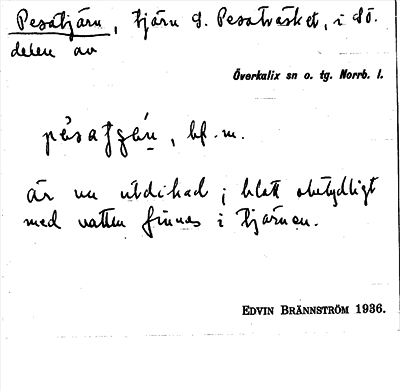 Pesatjärn, tjärn å Pesatväsket, i sö.
delen av
Överkalix sn o. tg. Norrb. l.
pèsatjǽṇ, bf. m.
är nu utdikad; blott obetydligt
med vatten finnes i tjärnen.
EDVIN BRÄNNSTRÖM 1936.